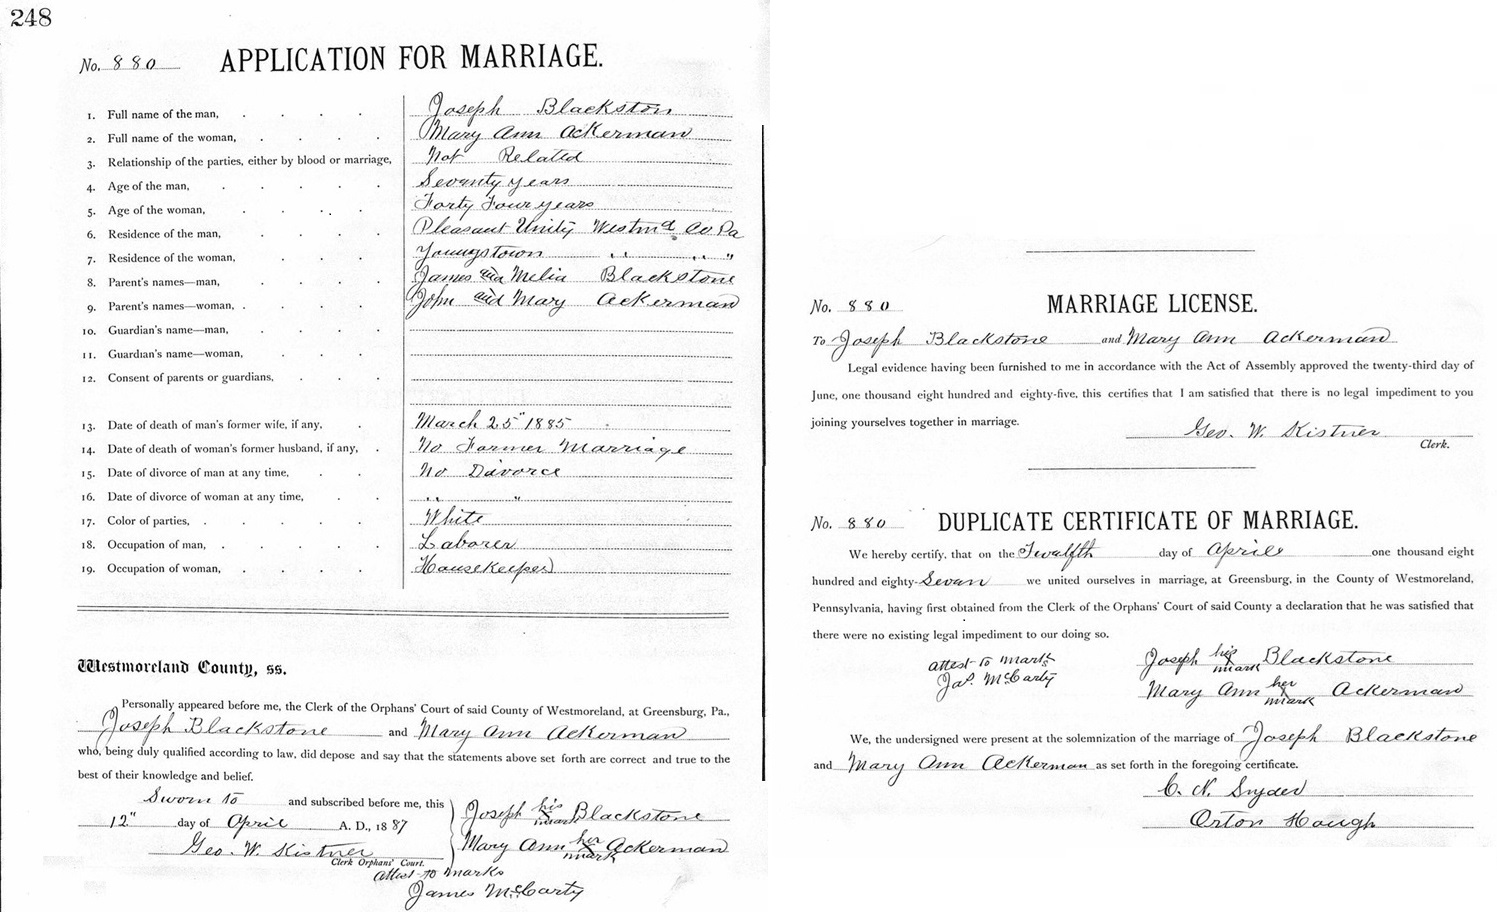 248
No. 880 APPLICATION FOR MARRIAGE.
1. Full name of the man, Joseph Blackston
2. Full name of the woman, Mary Ann Ackerman
3. Relationship of the parties, either by blood or marriage, Not Related
4. Age of the man, Seventy years
5. Age of the woman, Forty Four years
6. Residence of the man, Pleasant Unity Westmd Co Pa
7. Residence of the woman, Youngstown " " "
8. Parent's names—man, James and Melia Blackstone
9. Parent's names—woman, John and Mary Ackerman
10. Guardian's name—man,
11. Guardian's name—woman,
12. Consent of parents or guardians,
13. Date of death of man's former wife, if any, March 25" 1885
14. Date of death of woman's former husband, if any, No Former Marriage
15. Date of divorce of man at any time, No Divorce
16. Date of divorce of woman at any time, " "
17. Color of parties, White
18. Occupation of man, Laborer
19. Occupation of woman, Housekeeper
Westmoreland County, ss.
Personally appeared before me, the Clerk of the Orphans' Court of said County of Westmoreland, at Greensburg, Pa.,
Joseph Blackstone and Mary Ann Ackerman
who, being duly qualified according to law, did depose and say that the statements above set forth are correct and true to the
best of their knowledge and belief.
Sworn to and subscribed before me, this
12" day of April A. D., 1887
Geo. W. Kistner
Clerk Orphans' Court.
Joseph his X mark Blackstone
Mary Ann her X mark Ackerman
attest to marks
James McCarty
No. 880 MARRIAGE LICENSE.
To Joseph Blackstone and Mary Ann Ackerman
Legal evidence having been furnished to me in accordance with the Act of Assembly approved the twenty-third day of
June, one thousand eight hundred and eighty-five, this certifies that I am satisfied that there is no legal impediment to you
joining yourselves together in marriage.
Geo. W. Kistner
Clerk.
No. 880 DUPLICATE CERTIFICATE OF MARRIAGE.
We hereby certify, that on the Twelfth day of April one thousand eight
hundred and eighty-Seven we united ourselves in marriage, at Greensburg, in the County of Westmoreland,
Pennsylvania, having first obtained from the Clerk of the Orphans' Court of said County a declaration that he was satisfied that
there were no existing legal impediment to our doing so.
attest to marks
Jas. McCarty
Joseph his X mark Blackstone
Mary Ann her X mark Ackerman
We, the undersigned were present at the solemnization of the marriage of Joseph Blackstone
and Mary Ann Ackerman as set forth in the foregoing certificate.
C. N. Snyder
Orton Hough